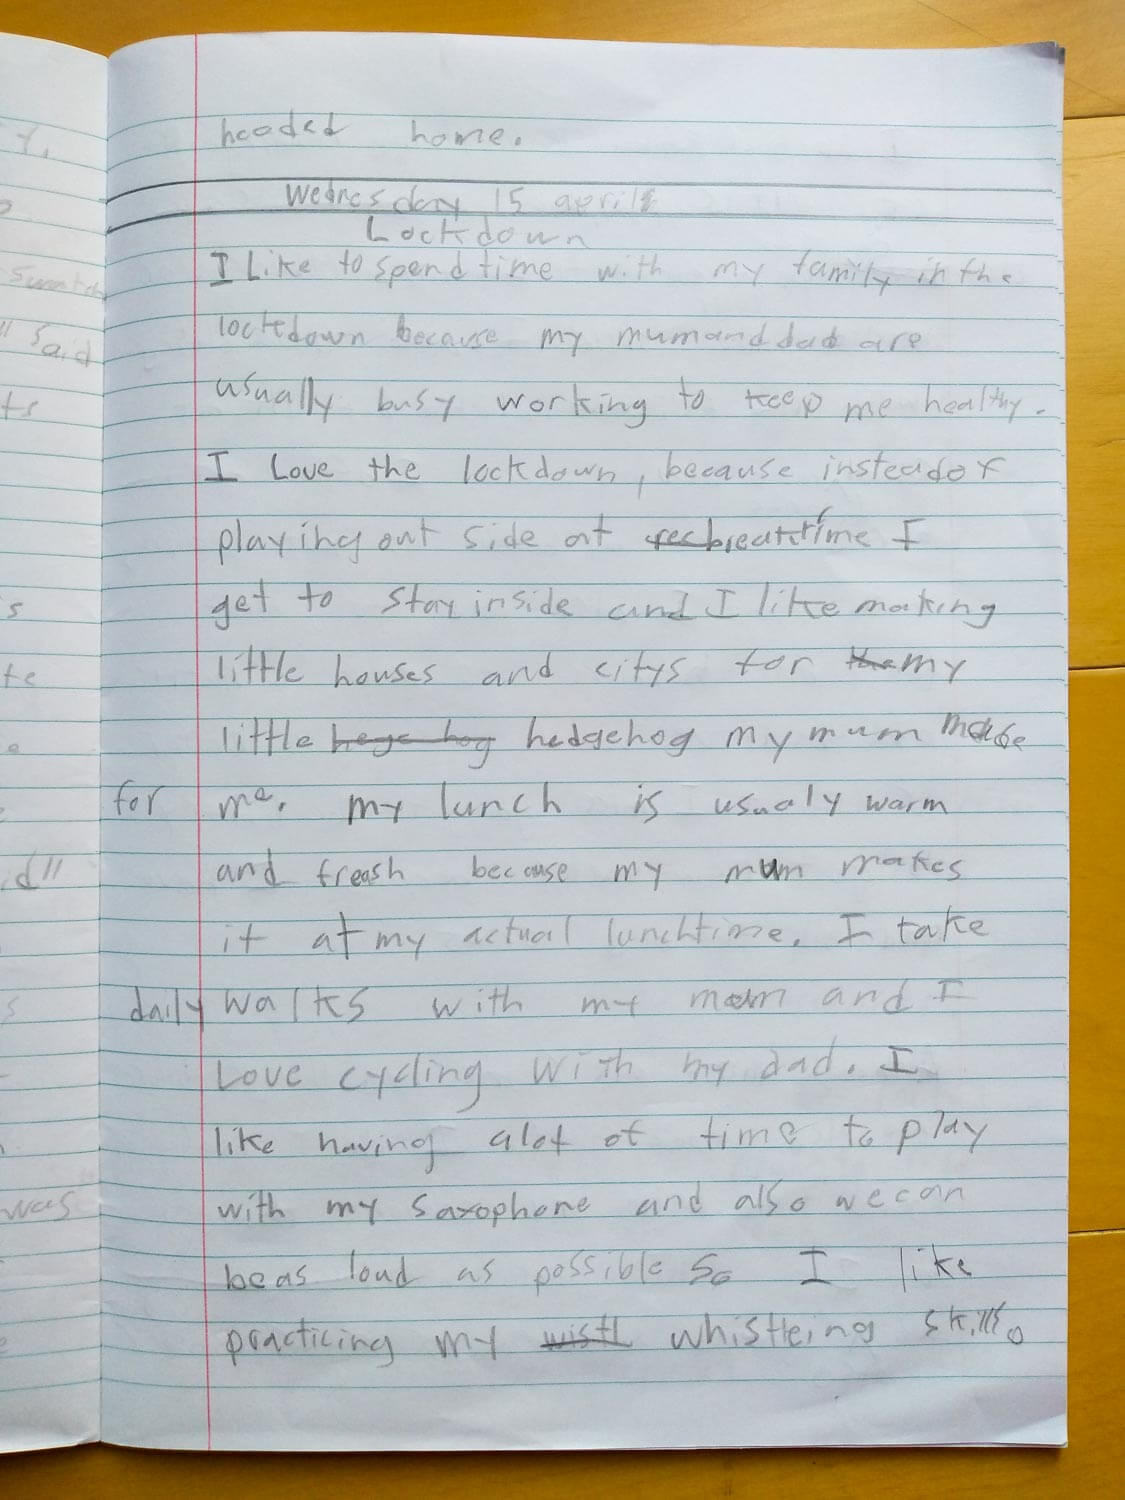 headed home.
Wednesday 15 april
Lockdown
I Like to spend time with my family in the
lockdown because my mum and dad are
usually busy working to keep me healthy.
I Love the lockdown, because instead of
playing out side at rec breaktime I
get to stay inside and I like making
little houses and citys for the my
little hege hog hedgehog my mum made
for me. my lunch is usualy warm
and freash because my mum makes
it at my actual lunchtime. I take
daily walks with my mum and I
Love cycling with my dad. I
like having alot of time to play
with my saxophone and also we can
be as loud as possible so I like
practicing my wistl whistleing skills.
Said
ts
s
te
d"
s
was